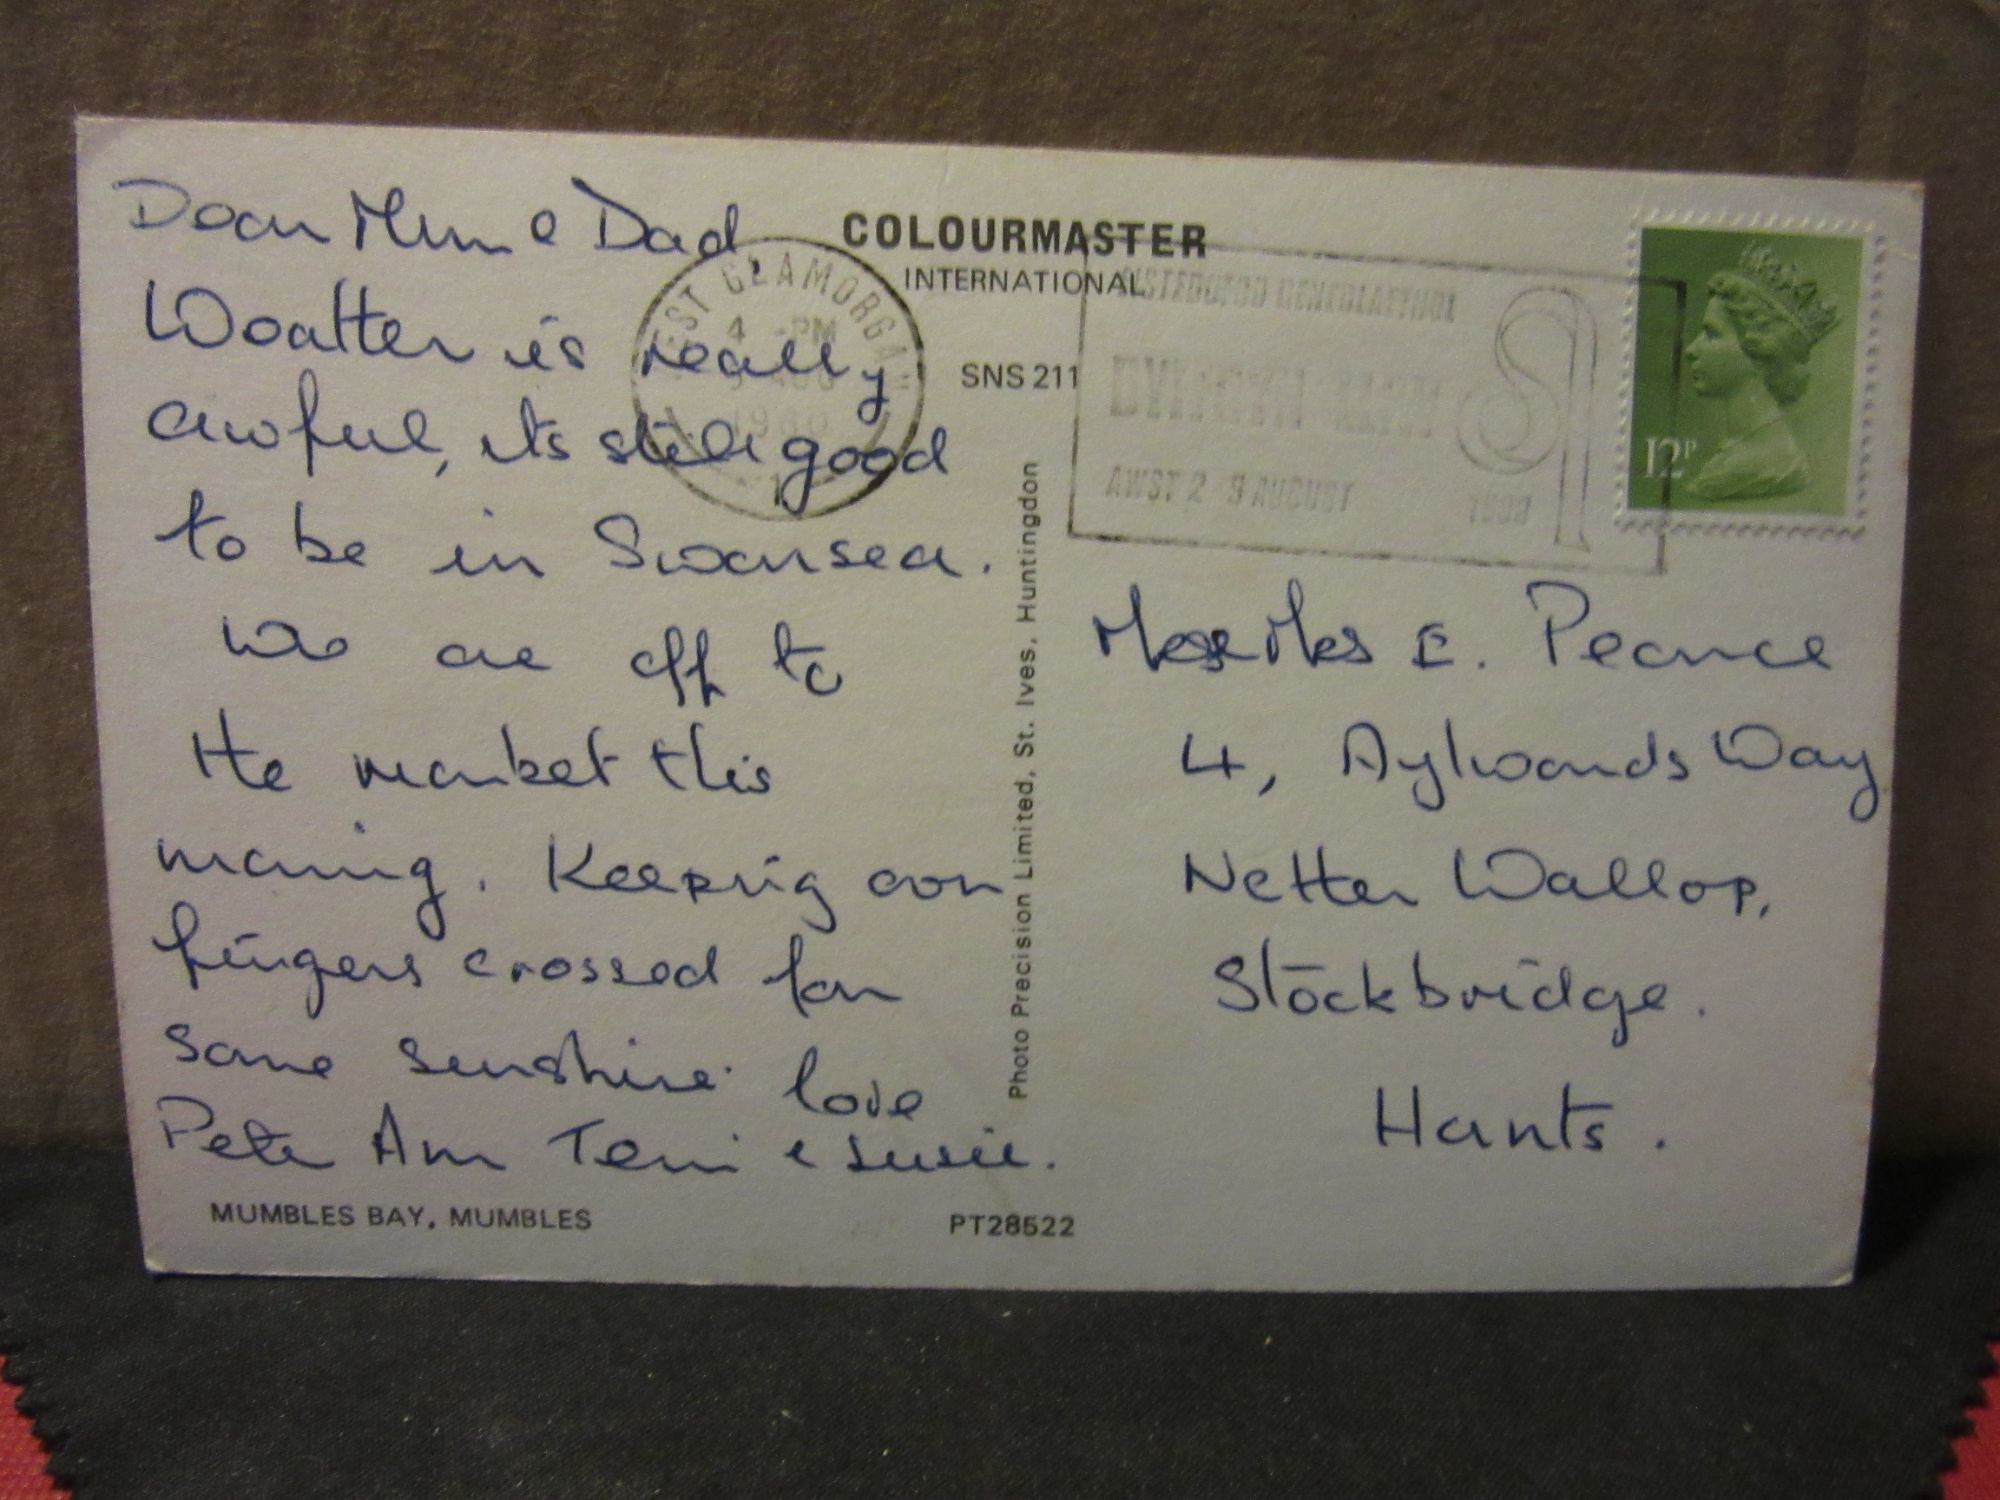 Dear Mum & Dad
Weather is really
awful, its still good
to be in Swansea.
We are off to
the market this
morning. Keeping our
fingers crossed for
some sunshine. love
Pete Ann Terri & Susie.
MUMBLES BAY, MUMBLES
COLOURMASTER
INTERNATIONAL
SNS 211
Photo Precision Limited, St. Ives, Huntingdon
PT28522
WEST GLAMORGAN
4 -PM
AUG
1980
1
EISTEDDFOD GENEDLAETHOL
AWST 2 9 AUGUST
1980
12P
Mrs E. Pearce
4, Aylwards Way
Netter Wallop,
Stockbridge.
Hants.